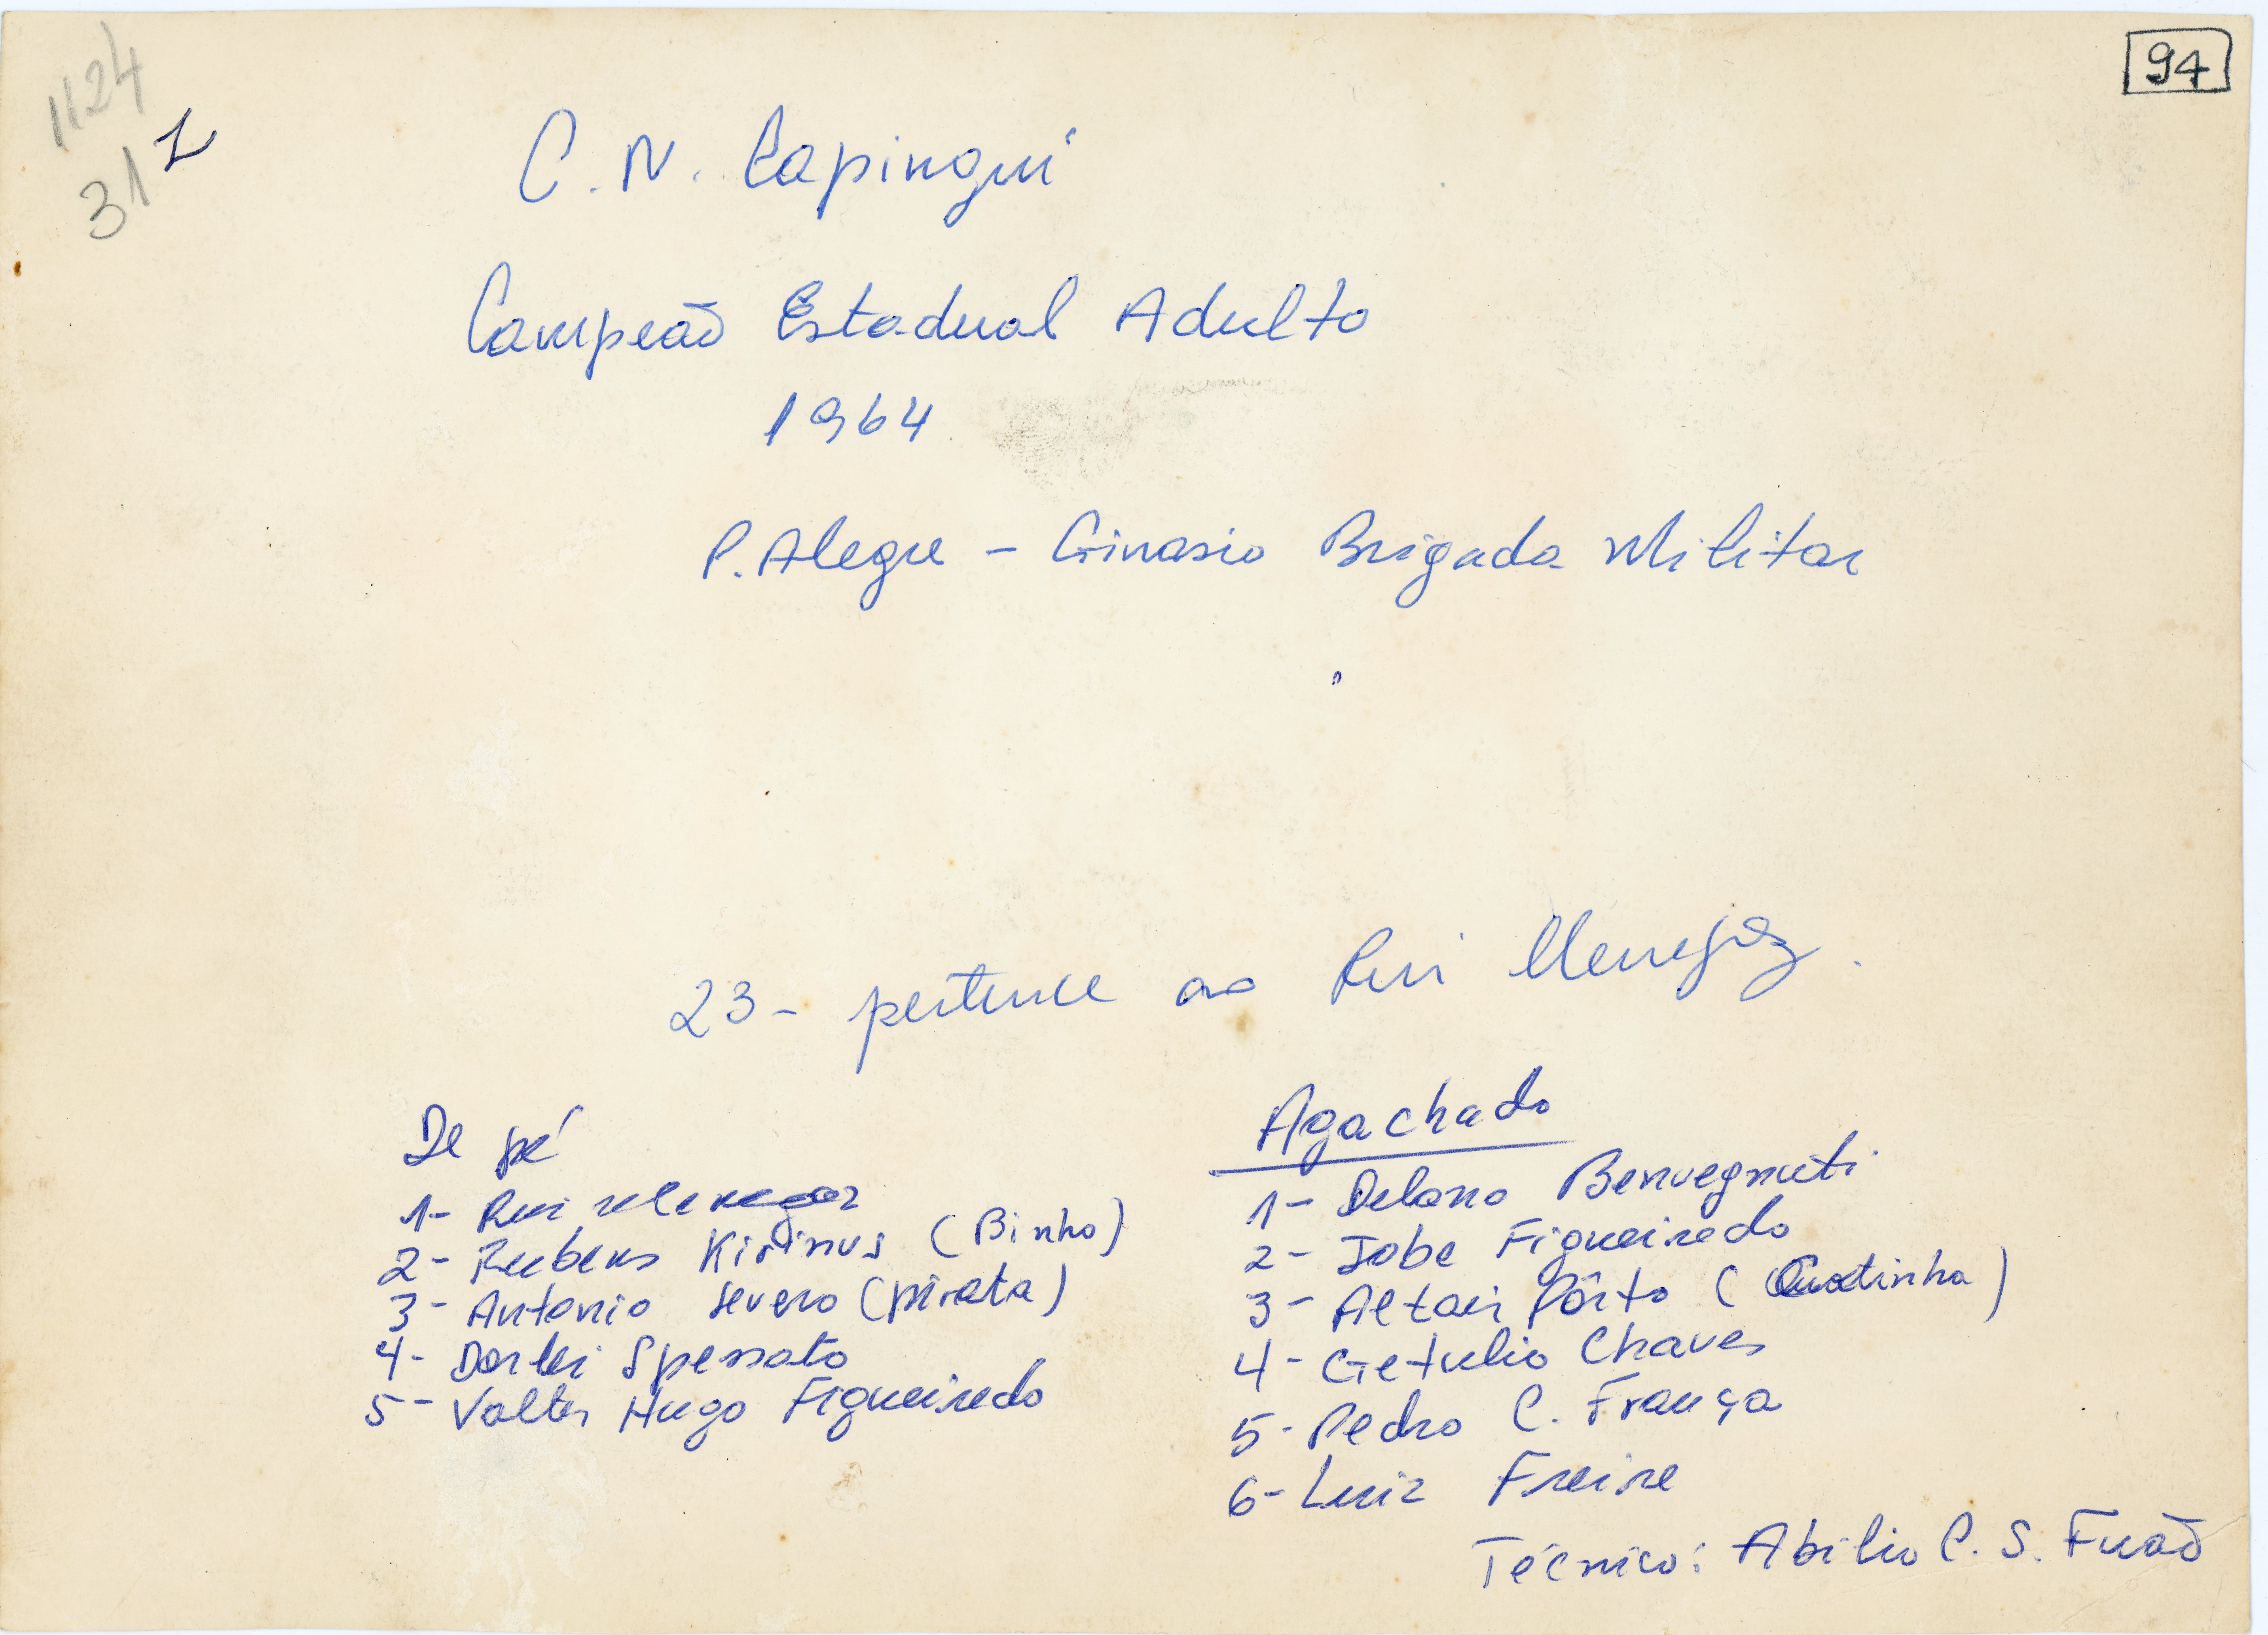 1124
31 L
94
C. N. Capingui
Campeão Estadual Adulto
1964
P. Alegre - Ginasio Brigada Militar
23 - pertence ao Rui Menegaz.
De pé
1- Rui Menegaz
2- Rubens Kirinus (Binho)
3- Antonio Severo (Pirata)
4- Dorlei Spessato
5- Valter Hugo Figueiredo
Agachado
1- Delano Benvegnuti
2- Jobe Figueiredo
3- Altair Pôrto (tinha)
4- Getulio Chaves
5- Pedro C. França
6- Luiz Freire
Técnico: Abilio C. S. Fuão